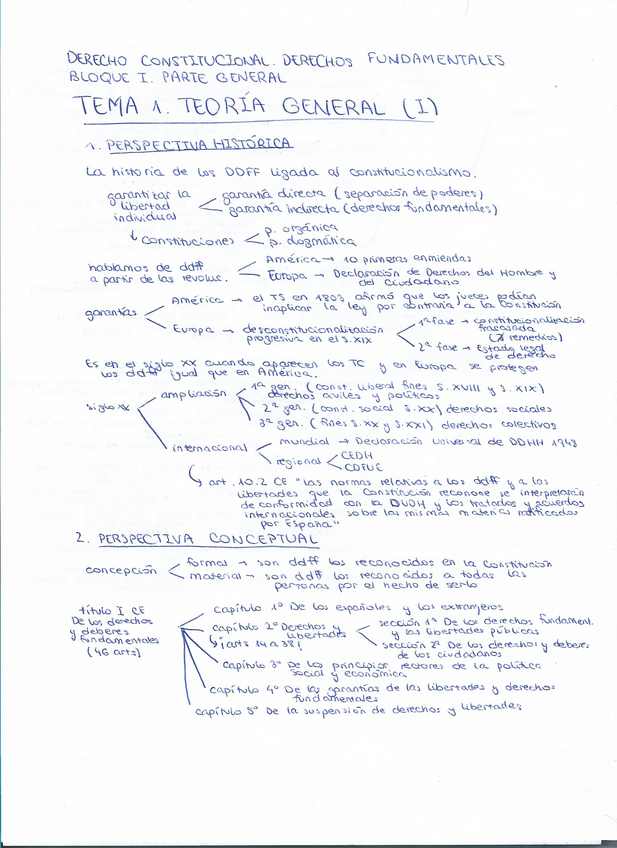 DERECHO CONSTITUCIONAL. DERECHOS FUNDAMENTALES
BLOQUE I. PARTE GENERAL
TEMA 1. TEORÍA GENERAL (I)
1. PERSPECTIVA HISTÓRICA
La historia de los DDFF ligada al constitucionalismo.
garantizar la libertad individual
garantía directa (separación de poderes)
garantía indirecta (derechos fundamentales)
↳ Constituciones
p. orgánica
p. dogmática
hablamos de ddff a partir de las revoluc.
América → 10 primeras enmiendas
Europa → Declaración de Derechos del Hombre y
del Ciudadano
garantías
América → el TS en 1803 afirmó que los jueces podían
inaplicar la ley por contraria a la Constitución
Europa → desconstitucionalización
progresiva en el S.XIX
1ª fase → constitucionalización
fracasada
(∄ remedios)
2ª fase → Estado legal
de derecho
Es en el siglo XX cuando aparecen los TC y en Europa se protegen
los ddff igual que en América.
siglo XX
ampliación
1ª gen. (const. liberal fines S. XVIII y S. XIX)
derechos civiles y políticos
2ª gen. (const. social S. XX) derechos sociales
3ª gen. (fines S. XX y S. XXI) derechos colectivos
internacional
mundial → Declaración Universal de DDHH 1948
regional
CEDH
CDFUE
↳ art. 10.2 CE "las normas relativas a los ddff y a las
libertades que la Constitución reconoce se interpretarán
de conformidad con la DUDH y los tratados y acuerdos
internacionales sobre las mismas materias ratificados
por España"
2. PERSPECTIVA CONCEPTUAL
concepción
formal → son ddff los reconocidos en la Constitución
material → son ddff los reconocidos a todas las
personas por el hecho de serlo
título I CE
De los derechos
y deberes
fundamentales
(46 arts)
capítulo 1º De los españoles y los extranjeros
capítulo 2º Derechos y
libertades
↳ ¡arts 14 a 38!
sección 1ª De los derechos fundament.
y las libertades públicas
sección 2ª De los derechos y deberes
de los ciudadanos
capítulo 3º De los principios rectores de la política
social y económica
capítulo 4º De las garantías de las libertades y derechos
fundamentales
capítulo 5º De la suspensión de derechos y libertades